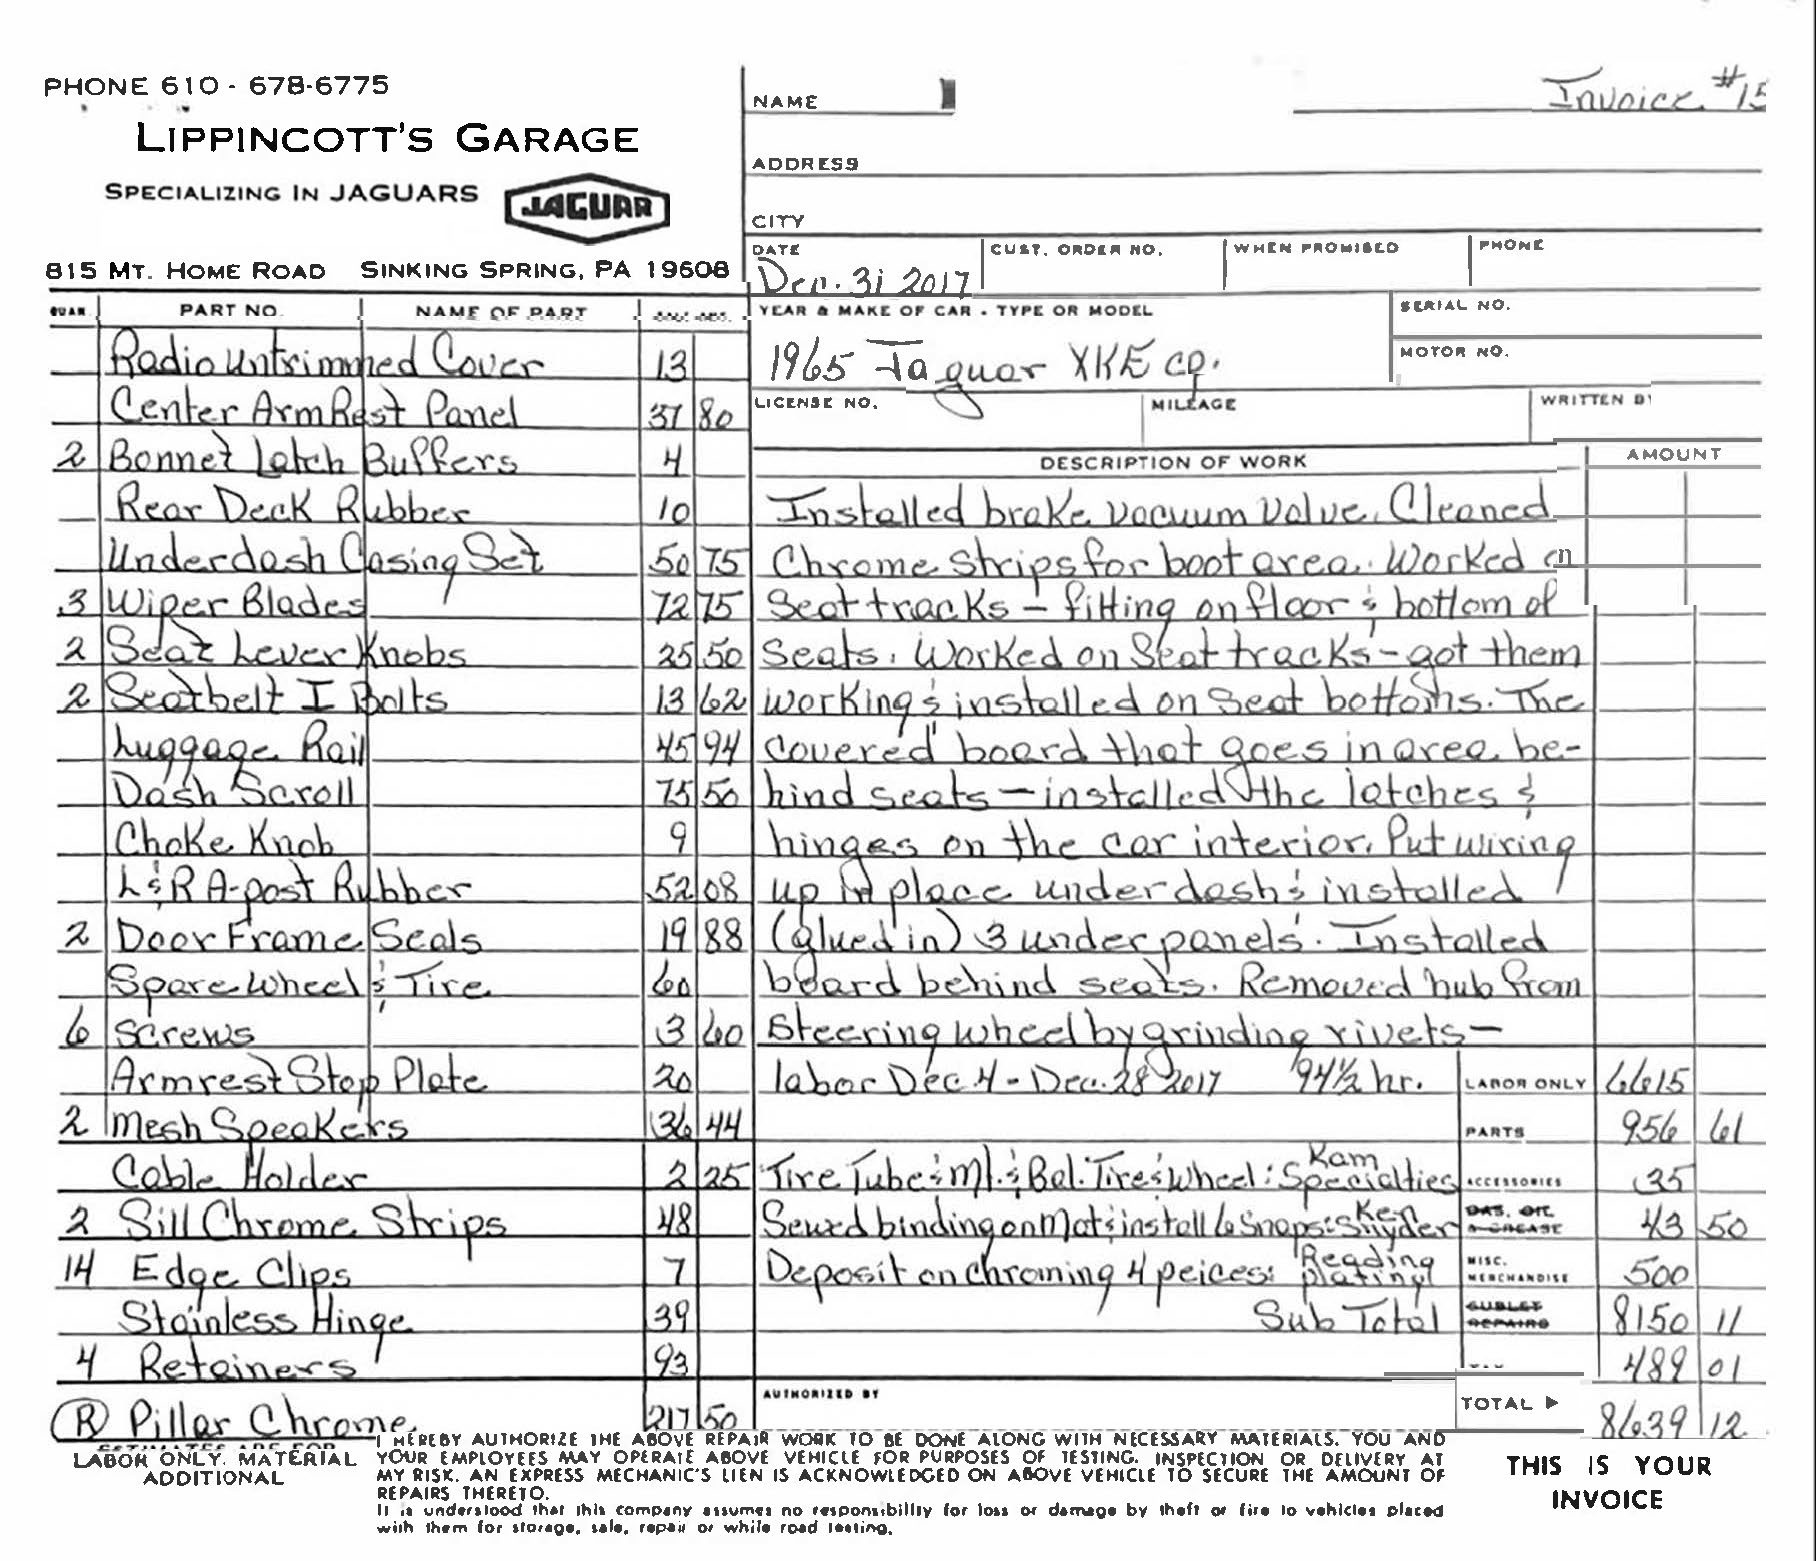 PHONE 610 - 678-6775
LIPPINCOTT'S GARAGE
SPECIALIZING IN JAGUARS
JAGUAR
815 MT. HOME ROAD SINKING SPRING, PA 19608
NAME
Invoice #15
ADDRESS
CITY
DATE
Dec. 31 2017
CUST. ORDER NO.
WHEN PROMISED
PHONE
YEAR & MAKE OF CAR - TYPE OR MODEL
1965 Jaguar XKE cp.
SERIAL NO.
MOTOR NO.
LICENSE NO.
MILEAGE
WRITTEN BY
QUAN. PART NO. NAME OF PART
Radio untrimmed Cover 13
Center ArmRest Panel 37 80
2 Bonnet Latch Buffers 4
Rear Deck Rubber 10
Underdash Casing Set 50 75
3 Wiper Blades 72 75
2 Seat Lever Knobs 25 50
2 Seatbelt I Bolts 13 62
Luggage Rail 45 94
Dash Scroll 75 50
Choke Knob 9
L & R A-post Rubber 52 08
2 Door Frame Seals 19 88
Spare Wheel & Tire 60
6 Screws 3 60
Armrest Stop Plate 20
2 Mesh Speakers 36 44
Cable Holder 2 25
2 Sill Chrome Strips 48
14 Edge Clips 7
Stainless Hinge 39
4 Retainers 93
(R) Pillar Chrome 217 50
DESCRIPTION OF WORK AMOUNT
Installed brake vacuum valve. Cleaned
Chrome strips for boot area. Worked on
Seat tracks - fitting on floor & bottom of
Seats. Worked on Seat tracks - got them
working & installed on seat bottoms. The
covered board that goes in area be-
hind seats - installed the latches &
hinges on the car interior. Put wiring
up in place under dash & installed
(glued in) 3 under panels. Installed
board behind seats. Removed hub from
steering wheel by grinding rivets -
labor Dec 4 - Dec. 28 2017 94½ hr. LABOR ONLY 6615
PARTS 956 61
Tire Tube & Mt. & Bal. Tire & Wheel: Kam Specialties ACCESSORIES 35
Sewed binding on Mat & install 6 Snaps: Ken Snyder GAS, OIL & GREASE 43 50
Deposit on chroming 4 peices: Reading plating MISC. MERCHANDISE 500
Sub Total SUBLET REPAIRS 8150 11
489 01
AUTHORIZED BY
TOTAL ▶ 8639 12
ESTIMATES ARE FOR
LABOR ONLY. MATERIAL
ADDITIONAL
I HEREBY AUTHORIZE THE ABOVE REPAIR WORK TO BE DONE ALONG WITH NECESSARY MATERIALS. YOU AND
YOUR EMPLOYEES MAY OPERATE ABOVE VEHICLE FOR PURPOSES OF TESTING, INSPECTION OR DELIVERY AT
MY RISK. AN EXPRESS MECHANIC'S LIEN IS ACKNOWLEDGED ON ABOVE VEHICLE TO SECURE THE AMOUNT OF
REPAIRS THERETO.
It is understood that this company assumes no responsibility for loss or damage by theft or fire to vehicles placed
with them for storage, sale, repair or while road testing.
THIS IS YOUR
INVOICE